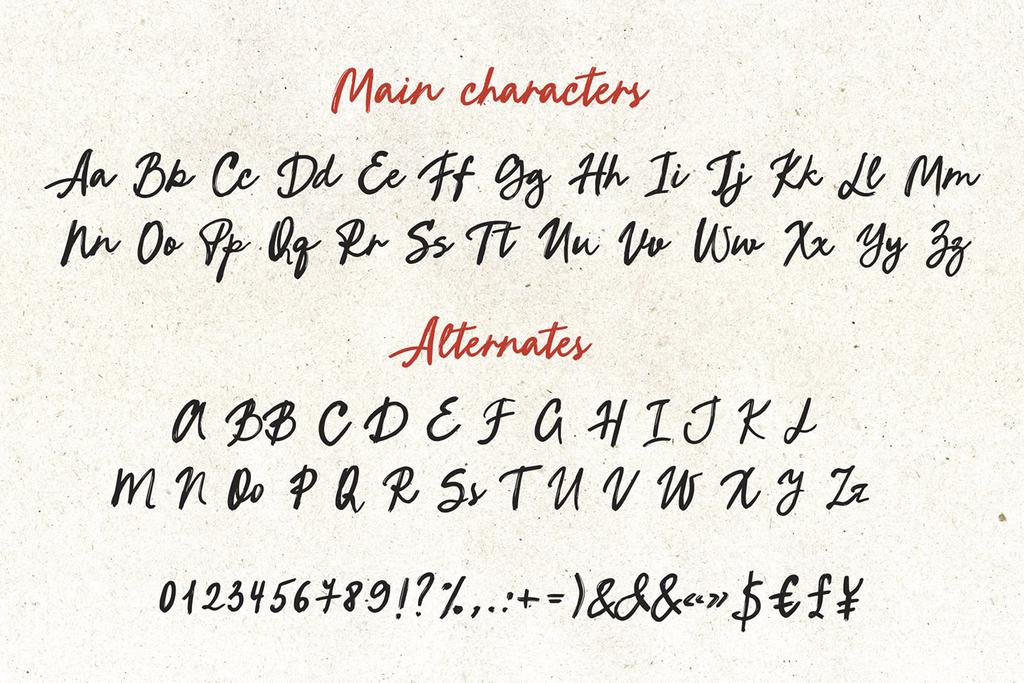 Main characters
Aa Bb Cc Dd Ee Ff Gg Hh Ii Jj Kk Ll Mm
Nn Oo Pp Qq Rr Ss Tt Uu Vv Ww Xx Yy Zz
Alternates
A BB C D E F G H I J K L
M N Oo P Q R Ss T U V W X Y Zz
0123456789!?%,.:+=)&&&«»$€£¥